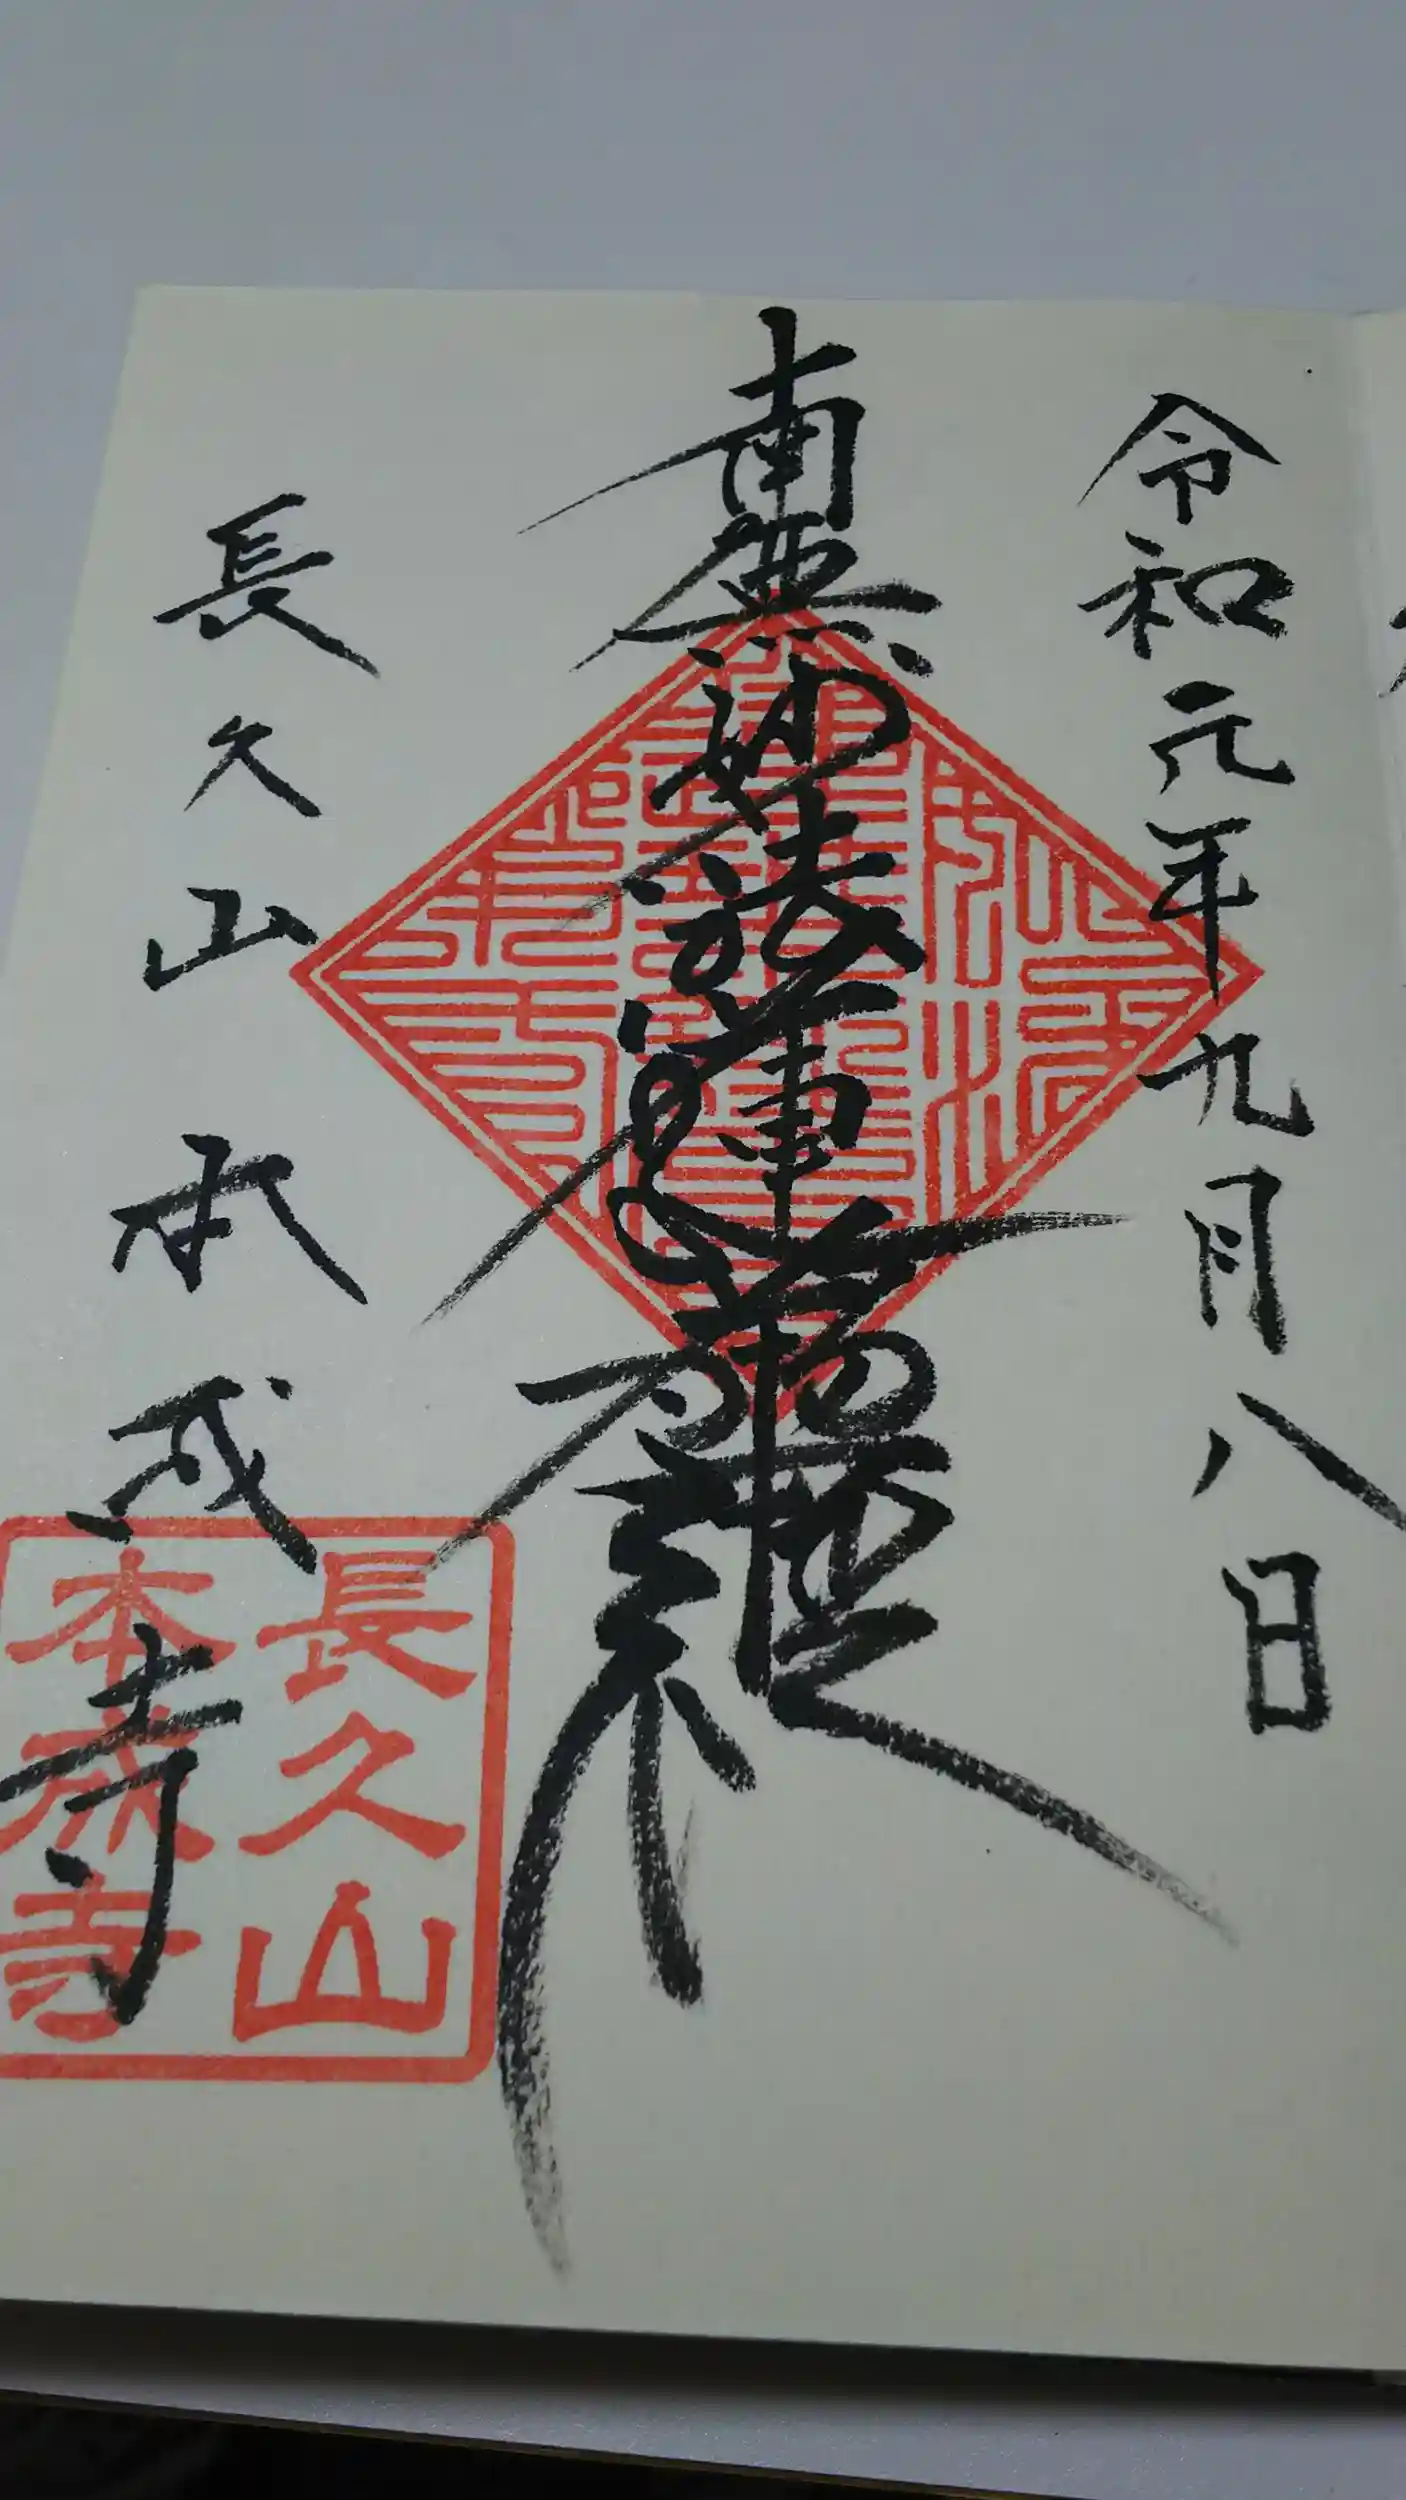 令和元年九月八日
南無妙法蓮華経
長久山本成寺
長久山
本成寺